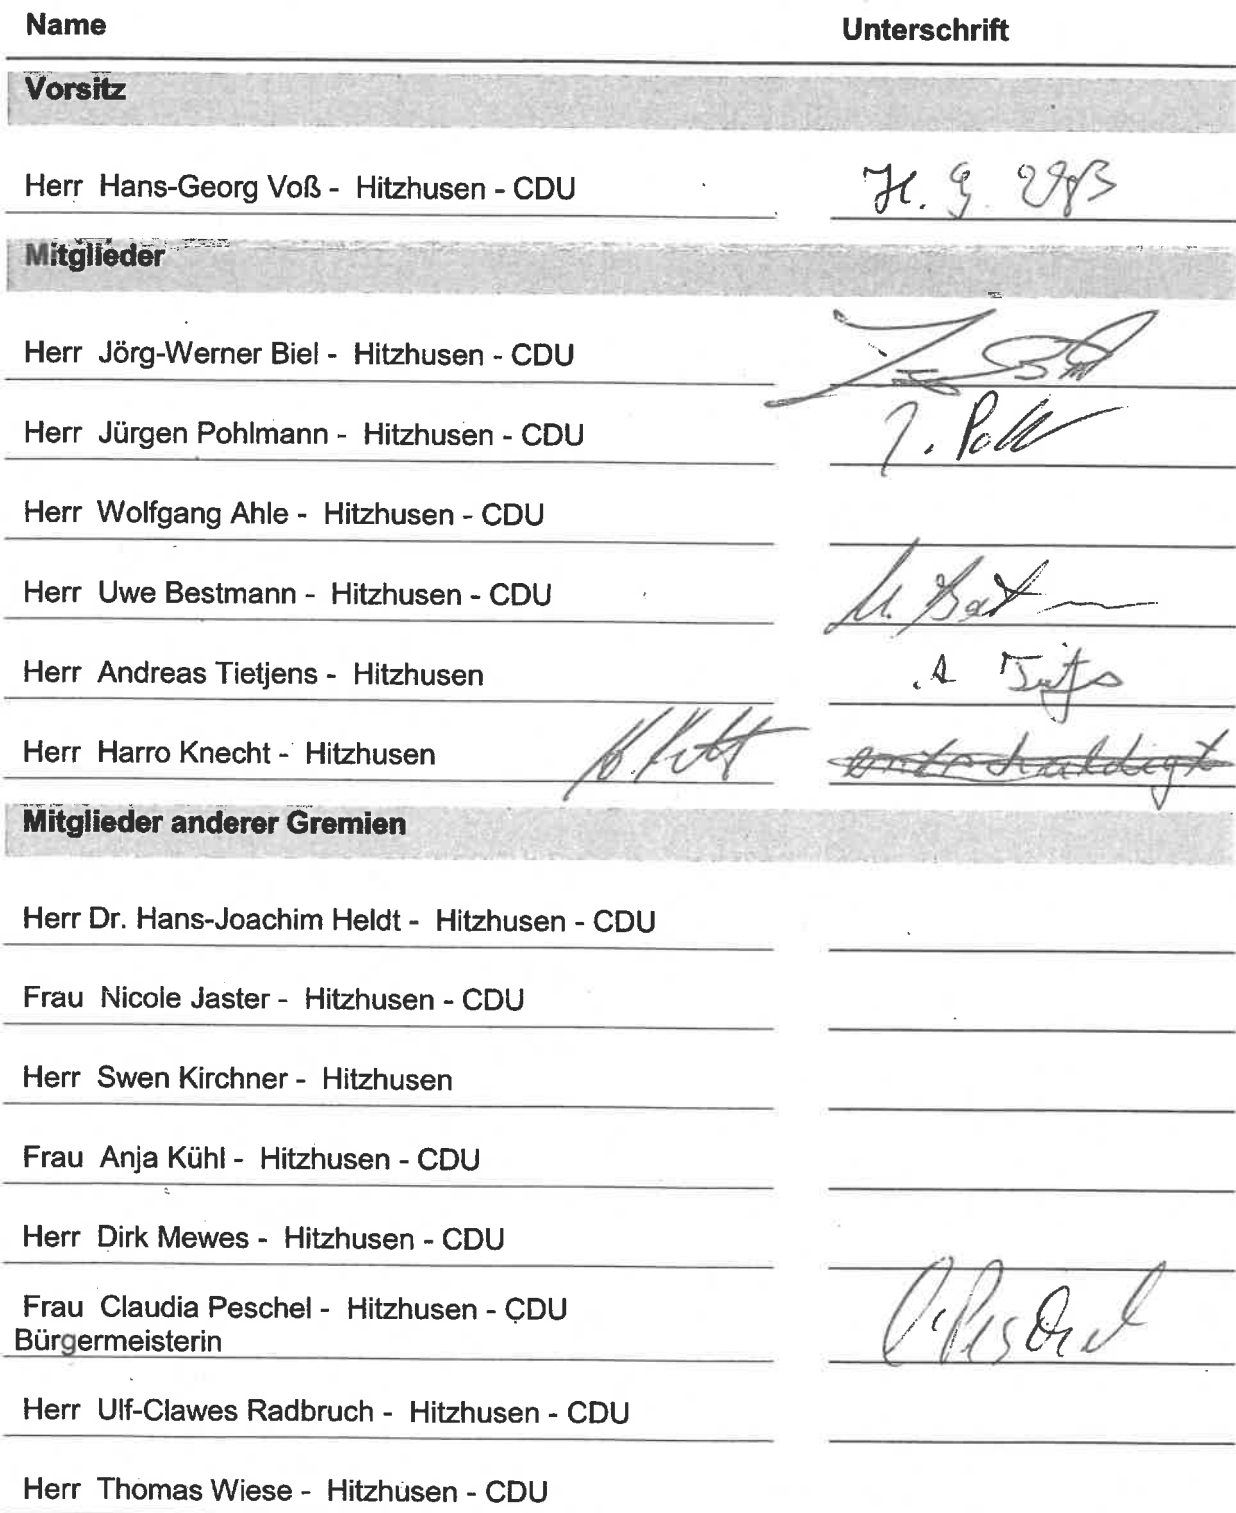 Name Unterschrift
Vorsitz
Herr Hans-Georg Voß - Hitzhusen - CDU H. G. Voß
Mitglieder
Herr Jörg-Werner Biel - Hitzhusen - CDU
Herr Jürgen Pohlmann - Hitzhusen - CDU
Herr Wolfgang Ahle - Hitzhusen - CDU
Herr Uwe Bestmann - Hitzhusen - CDU
Herr Andreas Tietjens - Hitzhusen
Herr Harro Knecht - Hitzhusen entschuldigt
Mitglieder anderer Gremien
Herr Dr. Hans-Joachim Heldt - Hitzhusen - CDU
Frau Nicole Jaster - Hitzhusen - CDU
Herr Swen Kirchner - Hitzhusen
Frau Anja Kühl - Hitzhusen - CDU
Herr Dirk Mewes - Hitzhusen - CDU
Frau Claudia Peschel - Hitzhusen - CDU
Bürgermeisterin C. Peschel
Herr Ulf-Clawes Radbruch - Hitzhusen - CDU
Herr Thomas Wiese - Hitzhusen - CDU